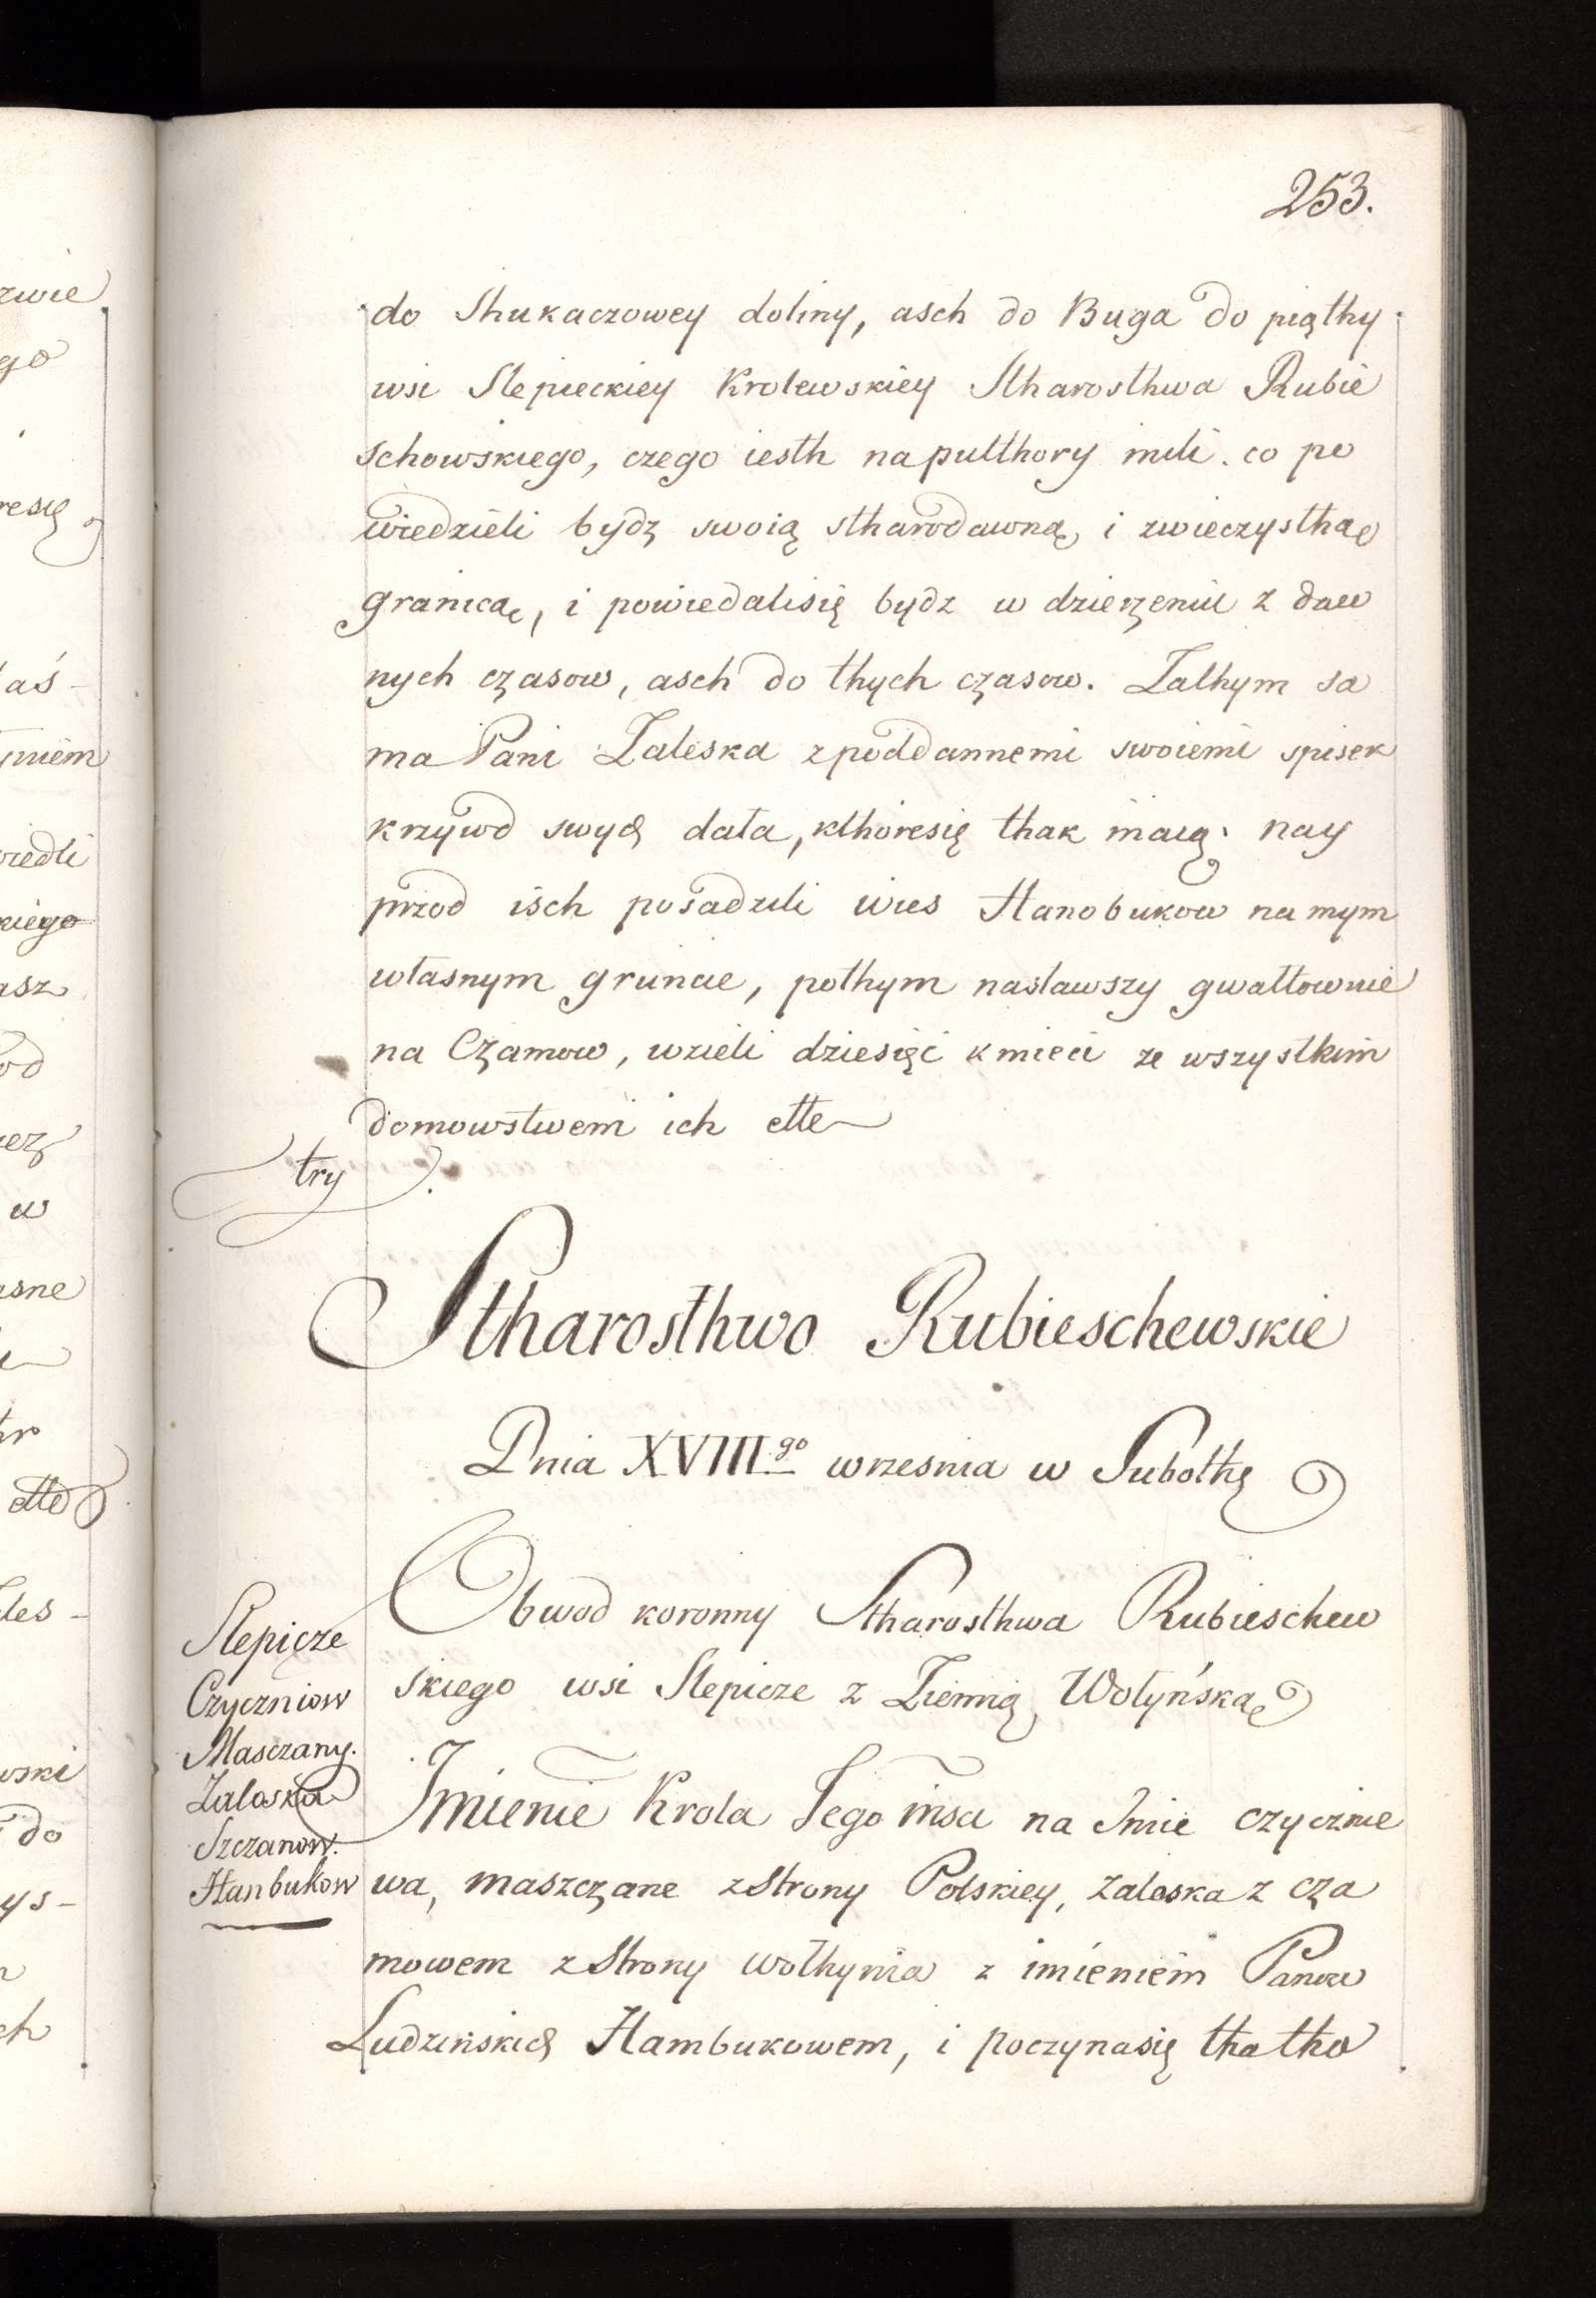 253.
do Shukaczowey doliny, asch do Buga do piąthy
wsi Slepieckiey Krolewskiey Stharosthwa Rubie
schowskiego, czego iesth napulthory mili. co po
wiedzieli bydz swoią stharodawną i zwieczysthą
granicą, i powiedalisię bydz w dzierzeniu z daw
nych czasow, asch do thych czasow. Zathym sa
ma Pani Zaleska zpoddannemi swoiemi spisek
krzywd swych dała, kthoresię thak maią: nay
przod isch posadzili wies Hanobukow na mym
własnym gruncie, pothym nasławszy gwałtownie
na Czamow, wzieli dziesięć kmieci ze wszystkim
domowstwem ich ette
try
Stharosthwo Rubieschewskie
Dnia XVIII go wrzesnia w Subothę
Obwod koronny Stharosthwa Rubieschew
skiego wsi Slepicze z Ziemią Wołyńską
Slepicze
Czyczniow
Masczany.
Zaloska
Szczanow.
Hanbukow
Imienie Krola Jego msci na Imie czycznie
wa, maszczane zStrony Polskiey, zaloska z cza
mowem zStrony wołhynia z imieniem Panow
Ludzinskich Hambukowem, i poczynasię tha tho
zwie
ego
resię
aś-
miem
wiedli
kiego
asz
od
w
asne
ette
les-
wski
do
ys-
ch